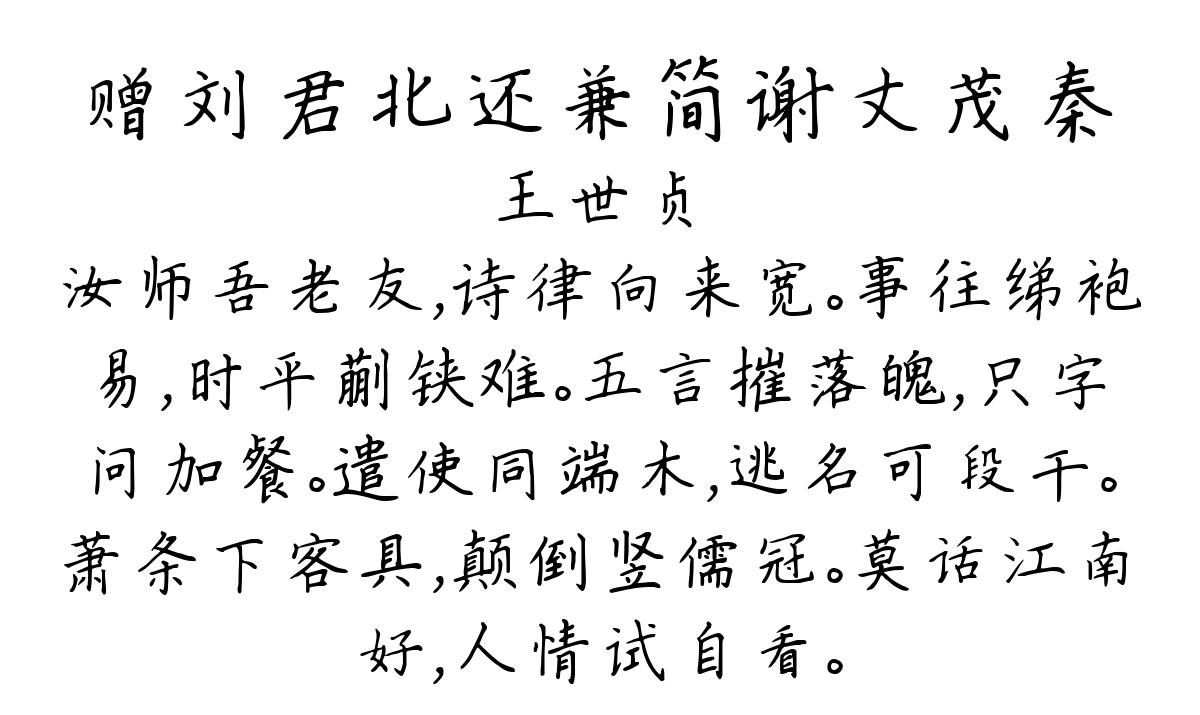 赠刘君北还兼简谢丈茂秦
王世贞
汝师吾老友,诗律向来宽。事往绨袍
易,时平蒯铗难。五言摧落魄,只字
问加餐。遣使同端木,逃名可段干。
萧条下客具,颠倒竖儒冠。莫话江南
好,人情试自看。